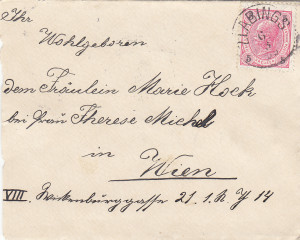 Ihr
Wohlgeboren
dem Fräulein Marie Hock
bei Frau Therese Michel
in
Wien
VIII. Wickenburggasse 21. 1. R. Y 14